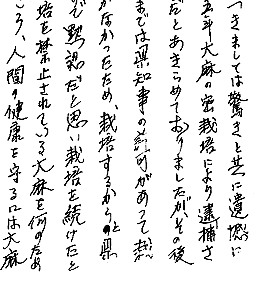 つきましては驚きと共に遺憾に
五年大麻の密栽培により逮捕さ
だとあきらめておりましたが、その後
までは県知事の許可があって
がなかったため、栽培するからと県
で黙認だと思い栽培を続けたと
培を禁止されている大麻を何のため
ころ、人間の健康を守るには大麻